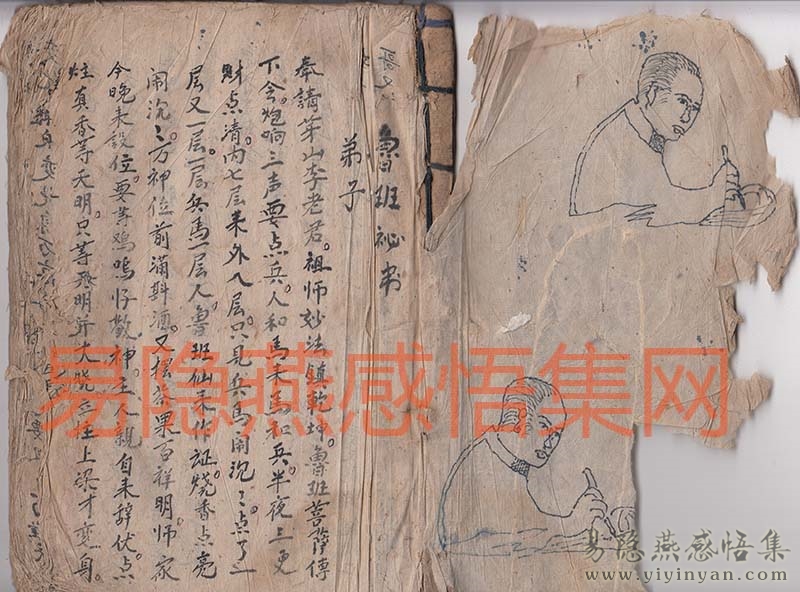 魯班祕书
弟子
奉請茅山李老君。祖师妙法鎮乾坤。魯班菩萨傳
下令。炮响三声要点兵。人和馬来馬和兵。半夜三更
财点清。内七层来外八层。只見兵馬闹沉〻。点了一
层又一层。一层兵馬一层人。魯班仙来作証。烧香点亮
闹沉〻。万神位前满斟酒。又摆茶果百祥明。师家
今晚来設位。要等鸡鸣好敬神。主人親自来辞伏。点
炷真香等天明。只等發明并大晓。三柱上梁才变身。
易隐燕感悟集网
易隐燕感悟集
www.yiyinyan.com